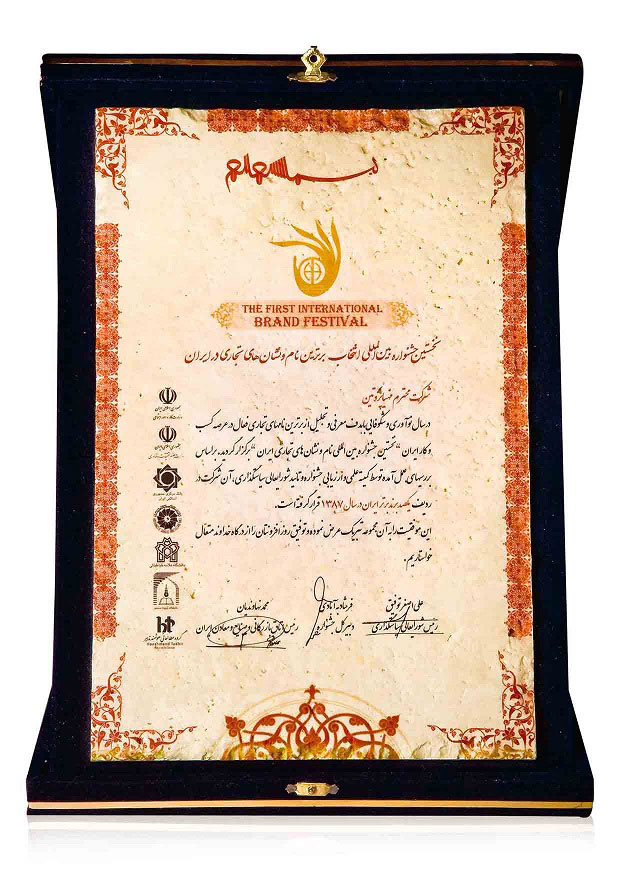 بسمه تعالی
THE FIRST INTERNATIONAL
BRAND FESTIVAL
نخستین جشنواره بین المللی انتخاب برترین نام و نشان های تجاری در ایران
شرکت محترم مهیا پروتئین
در سال نوآوری و شکوفایی با هدف معرفی و تجلیل از برترین نامهای تجاری فعال در عرصه کسب
و کار ایران "نخستین جشنواره بین المللی نام و نشان های تجاری ایران" برگزار گردید. براساس
بررسیهای بعمل آمده توسط کمیته علمی و ارزیابی جشنواره و تائید شورایعالی سیاستگذاری، آن شرکت در
ردیف یکصد برند برتر ایران در سال ۱۳۸۷ قرار گرفته است.
این موفقیت را به آن مجموعه تبریک عرض نموده و توفیق روز افزونتان را از درگاه خداوند متعال
خواستاریم.
علی اصغر توفیق
رئیس شورایعالی سیاستگذاری
دبیر کل جشنواره
محمد نهاوندیان
رئیس اتاق بازرگانی و صنایع و معادن ایران